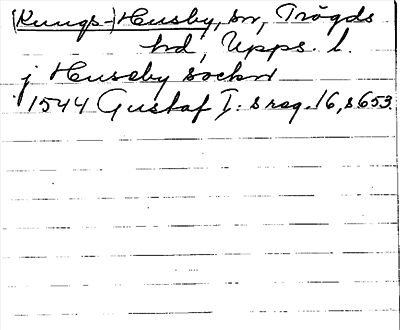 (Kungs-)Husby, sn, Trögds
hd, Upps. l.
j Huseby sockn
1544 Gustaf I: s reg. 16, s 653.